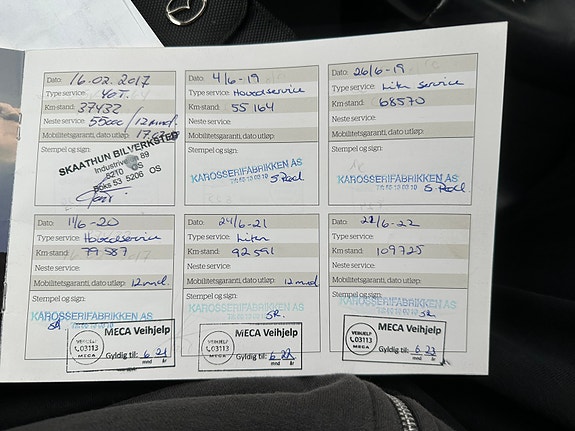 Dato: 16.02.2017
Type service:
Km-stand: 37432
Neste service: 55000 / 12 mnd.
Mobilitetsgaranti, dato utløp:
Stempel og sign:
SKAATHUN BILVERKSTED
Industrivei en 89
5210 OS
Boks 53 5206 OS
Dato: 4/6-19
Type service: Hovedservice
Km-stand: 55 164
Neste service:
Mobilitetsgaranti, dato utløp:
Stempel og sign:
KAROSSERIFABRIKKEN AS
Dato: 26/6-19
Type service: Liten service
Km-stand: 68570
Neste service:
Mobilitetsgaranti, dato utløp:
Stempel og sign:
KAROSSERIFABRIKKEN AS
Dato: 11/6-20
Type service: Hovedservice
Km-stand: 79 587
Neste service:
Mobilitetsgaranti, dato utløp: 12 mnd
Stempel og sign:
KAROSSERIFABRIKKEN AS
SR
VEIHJELP
03113
MECA
MECA Veihjelp
Gyldig til: 6 21
mnd år
Dato: 24/6-21
Type service: Liten
Km-stand: 92 591
Neste service:
Mobilitetsgaranti, dato utløp: 12 mnd
Stempel og sign:
KAROSSERIFABRIKKEN AS
SR.
VEIHJELP
03113
MECA
MECA Veihjelp
Gyldig til: 6 22
mnd år
Dato: /6-22
Type service:
Km-stand: 109725
Neste service:
Mobilitetsgaranti, dato utløp:
Stempel og sign:
KAROSSERIFABRIKKEN AS
SR
VEIHJELP
03113
MECA
MECA Veihjelp
Gyldig til: 6 23
mnd år